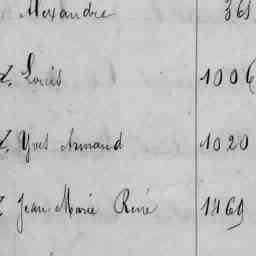 Alexandre 361
d. Louis 1006
d. Yves Armand 1020
d. Jean Marie René 1469